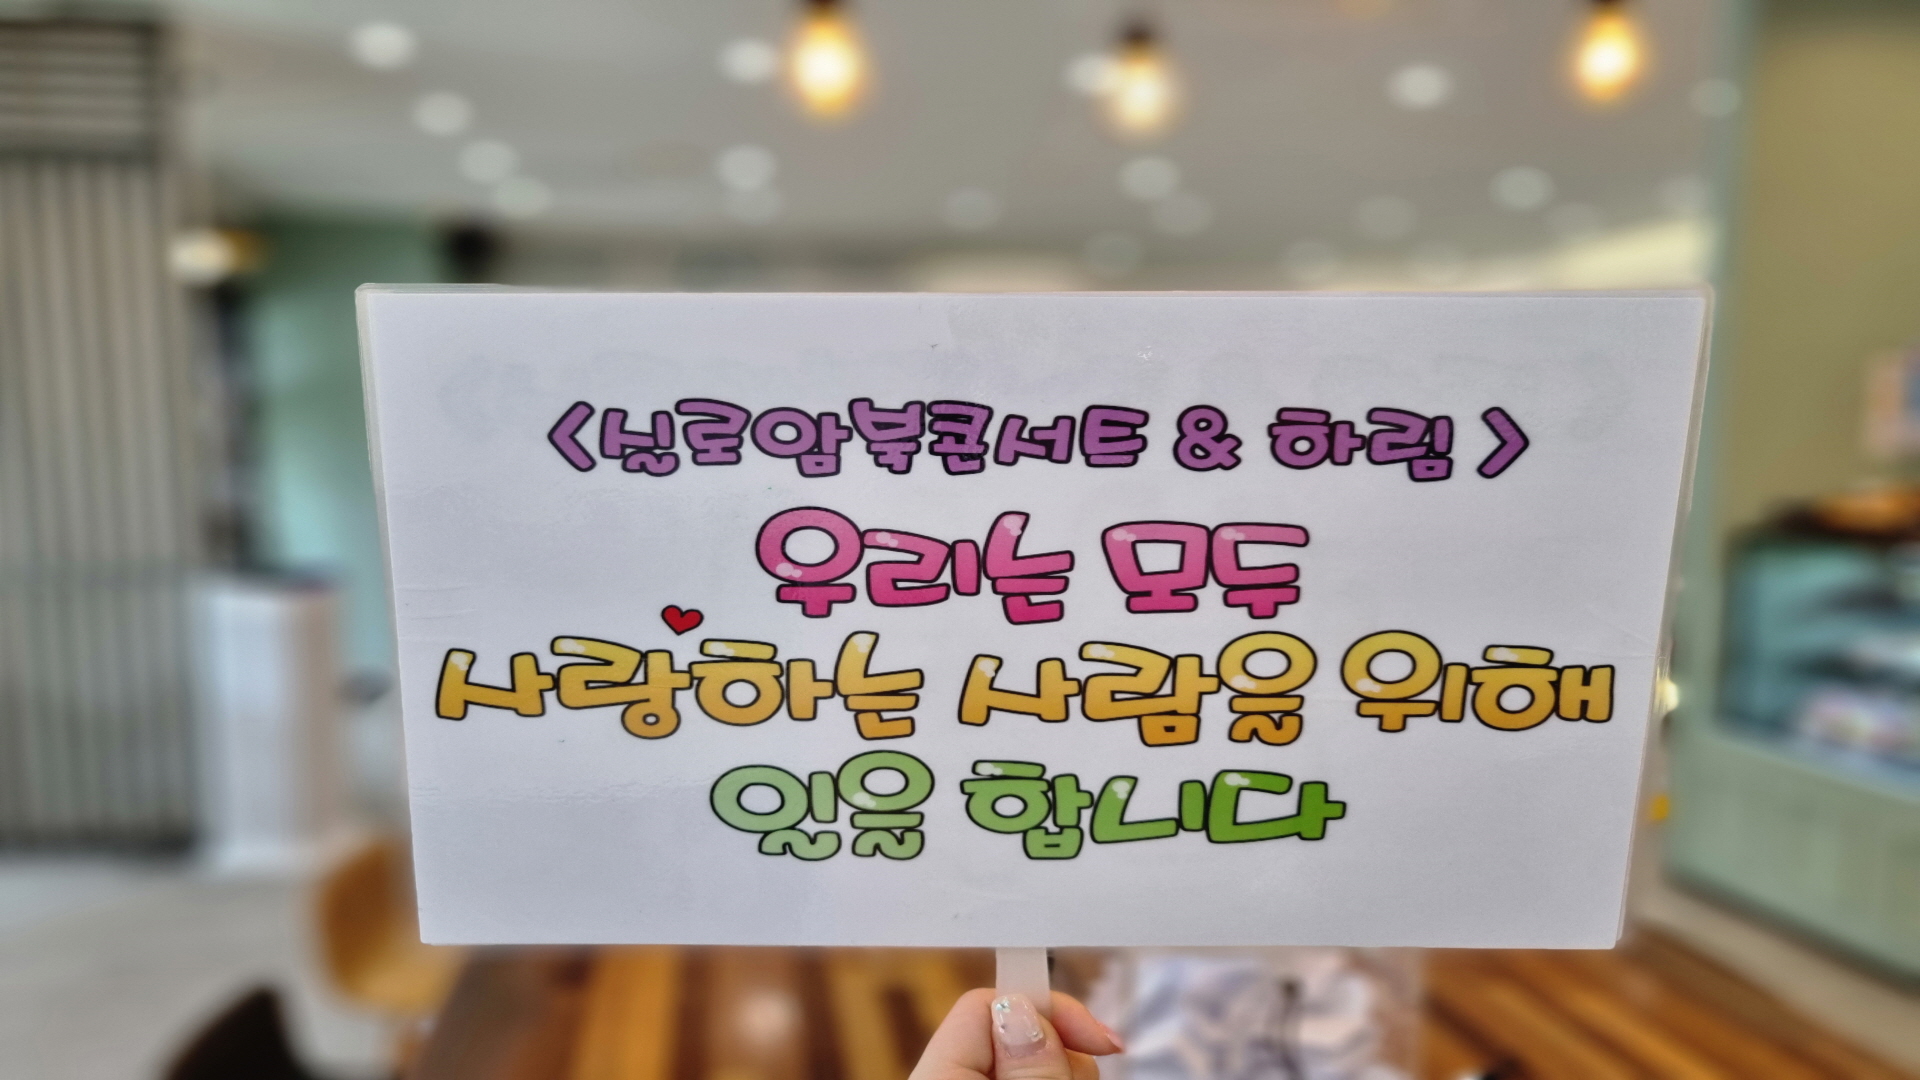 <실로암북콘서트 & 하림 >
우리는 모두
사랑하는 사람을 위해
일을 합니다